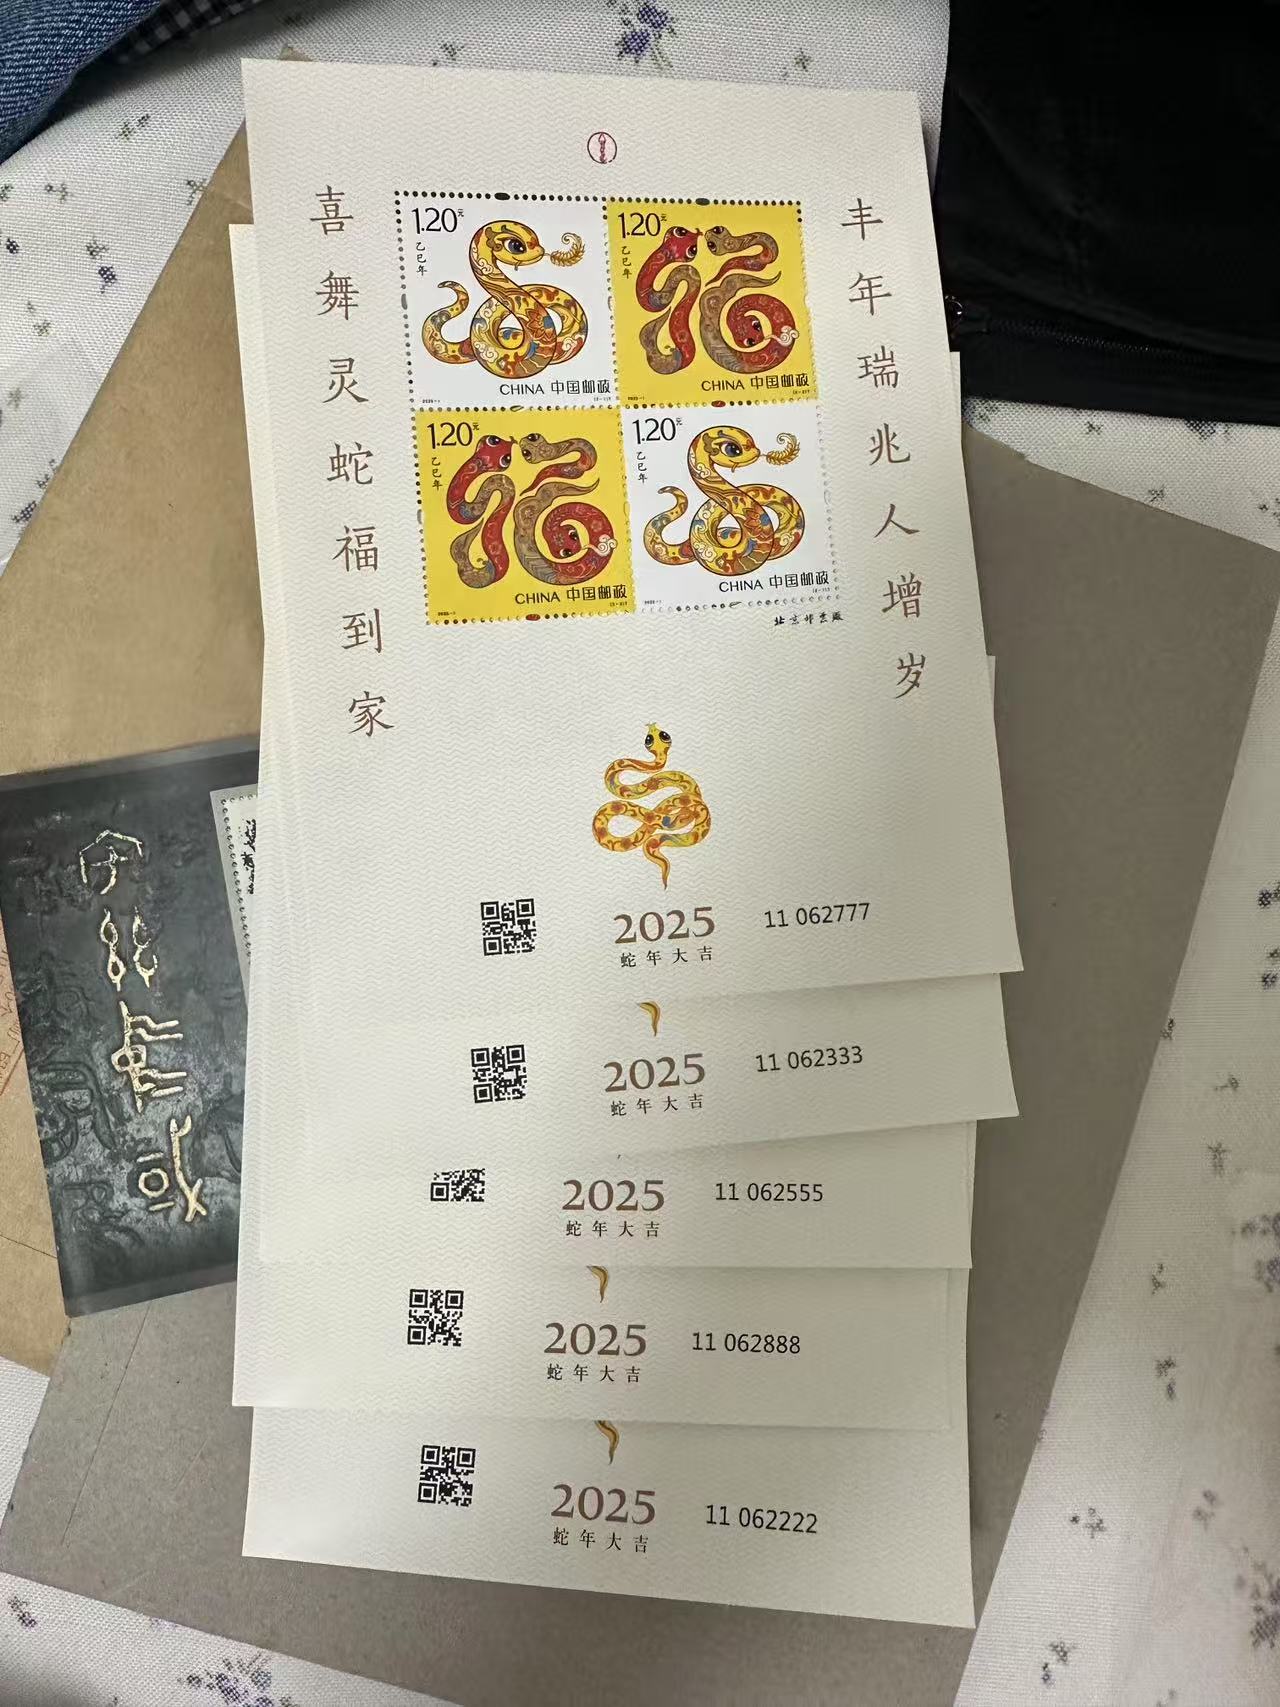 喜舞灵蛇福到家
丰年瑞兆人增岁
1.20元
乙巳年
CHINA 中国邮政
2025-1
(2-1)T
1.20元
乙巳年
CHINA 中国邮政
2025-1
(2-2)T
1.20元
乙巳年
CHINA 中国邮政
2025-1
(2-2)T
1.20元
乙巳年
CHINA 中国邮政
2025-1
(2-1)T
北京邮票厂
2025
蛇年大吉
11 062777
2025
蛇年大吉
11 062333
2025
蛇年大吉
11 062555
2025
蛇年大吉
11 062888
2025
蛇年大吉
11 062222